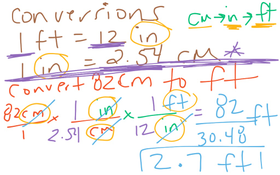 conversions
cm → in → ft
1 ft = 12 in
1 in = 2.54 cm *
Convert 82cm to ft
82cm/1 × 1 in/2.54 cm × 1 ft/12 in = 82/30.48 ft
2.7 ft